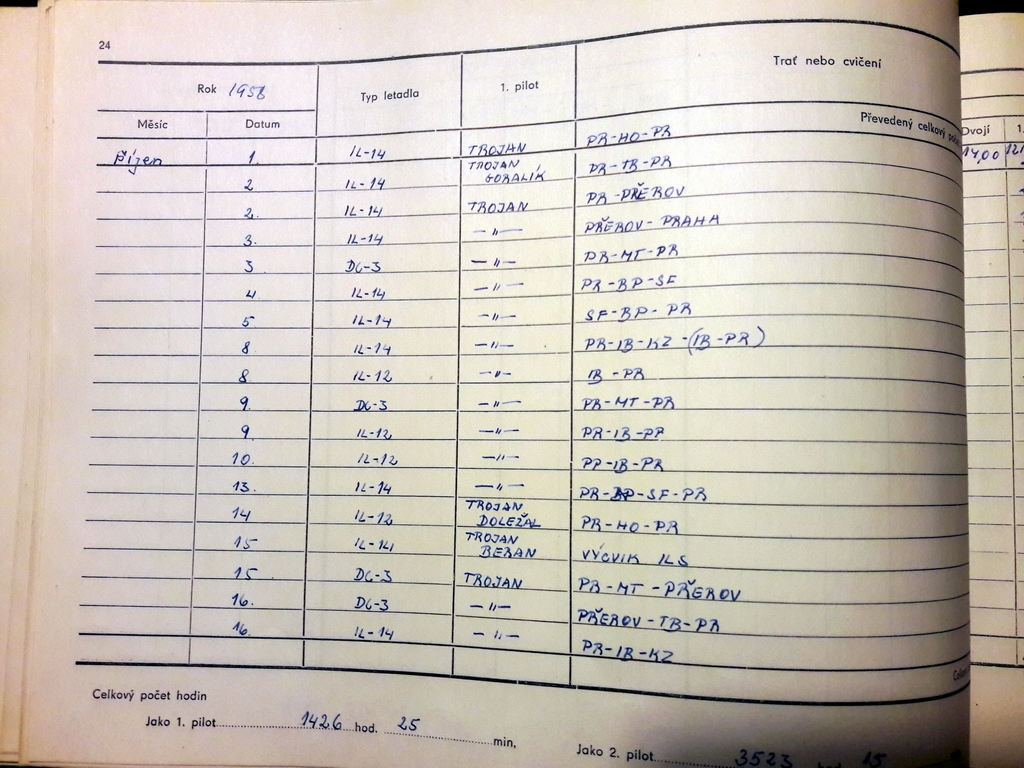 24
Rok 1958 Typ letadla 1. pilot Trať nebo cvičení
Měsíc Datum Převedený celkový Dvojí 1.
Říjen 1. IL-14 TROJAN PR-HO-PR 14,00 121
2 IL-14 TROJAN GORALÍK PR-TB-PR
2. IL-14 TROJAN PR-PŘEROV
3. IL-14 —"— PŘEROV-PRAHA
3 DC-3 —"— PR-MT-PR
4 IL-14 —"— PR-BP-SF
5 IL-14 —"— SF-BP-PR
8 IL-14 —"— PR-IB-KZ-(IB-PR)
8 IL-12 —"— IB-PR
9. DC-3 —"— PR-MT-PR
9 IL-12 —"— PR-IB-PR
10. IL-12 —"— PR-IB-PR
13. IL-14 —"— PR-BP-SF-PR
14 IL-12 TROJAN DOLEŽAL PR-HO-PR
15 IL-14 TROJAN BERAN VÝCVIK ILS
15 DC-3 TROJAN PR-MT-PŘEROV
16. DC-3 —"— PŘEROV-TB-PR
16. IL-14 —"— PR-IB-KZ
Celkový počet hodin
Jako 1. pilot 1426 hod. 25 min.
Jako 2. pilot 3523 hod. 15